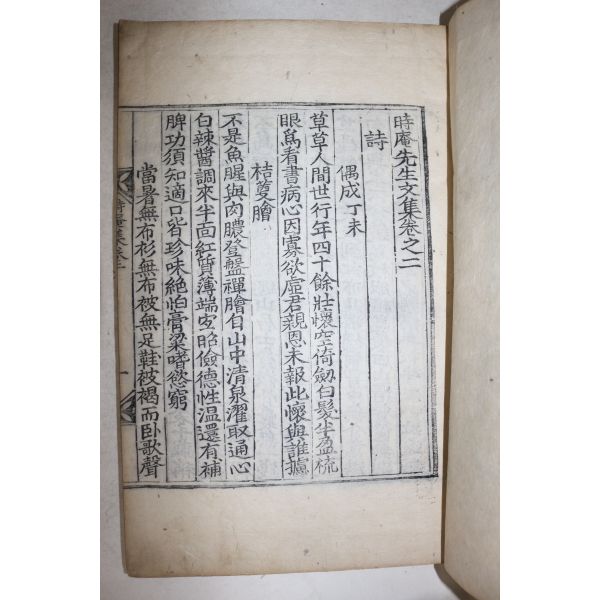 時庵先生文集卷之二
詩
偶成丁未
草草人間世行年四十餘壯懷空倚劒白髮半盈梳
眼爲看書病心因寡欲虛君親恩未報此懷與誰攄
桔蔓膾
不是魚腥與肉膿登盤禪膾自山中清泉濯取通心
白辣醬調來半面紅質薄端宜昭儉德性溫還有補
脾功須知適口皆珍味絶怕膏粱嗜慾窮
當暑無布衫無布被無足鞋被褐而臥歌聲
時庵集卷二
一